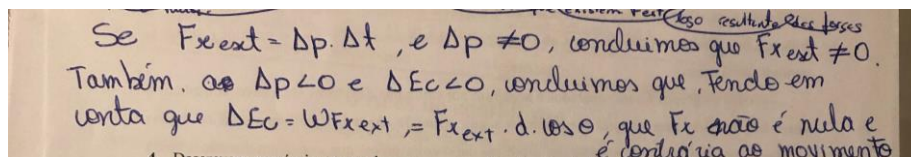 (caso resultante das forças
Se Fx ext = Δp. Δt , e Δp ≠0, concluimos que Fx ext ≠0.
Também, ao Δp<0 e ΔEc<0, concluimos que, Tendo em
conta que ΔEc = WFx ext , = Fx ext . d. cos θ, que Fx não é nula e
é contrária ao movimento